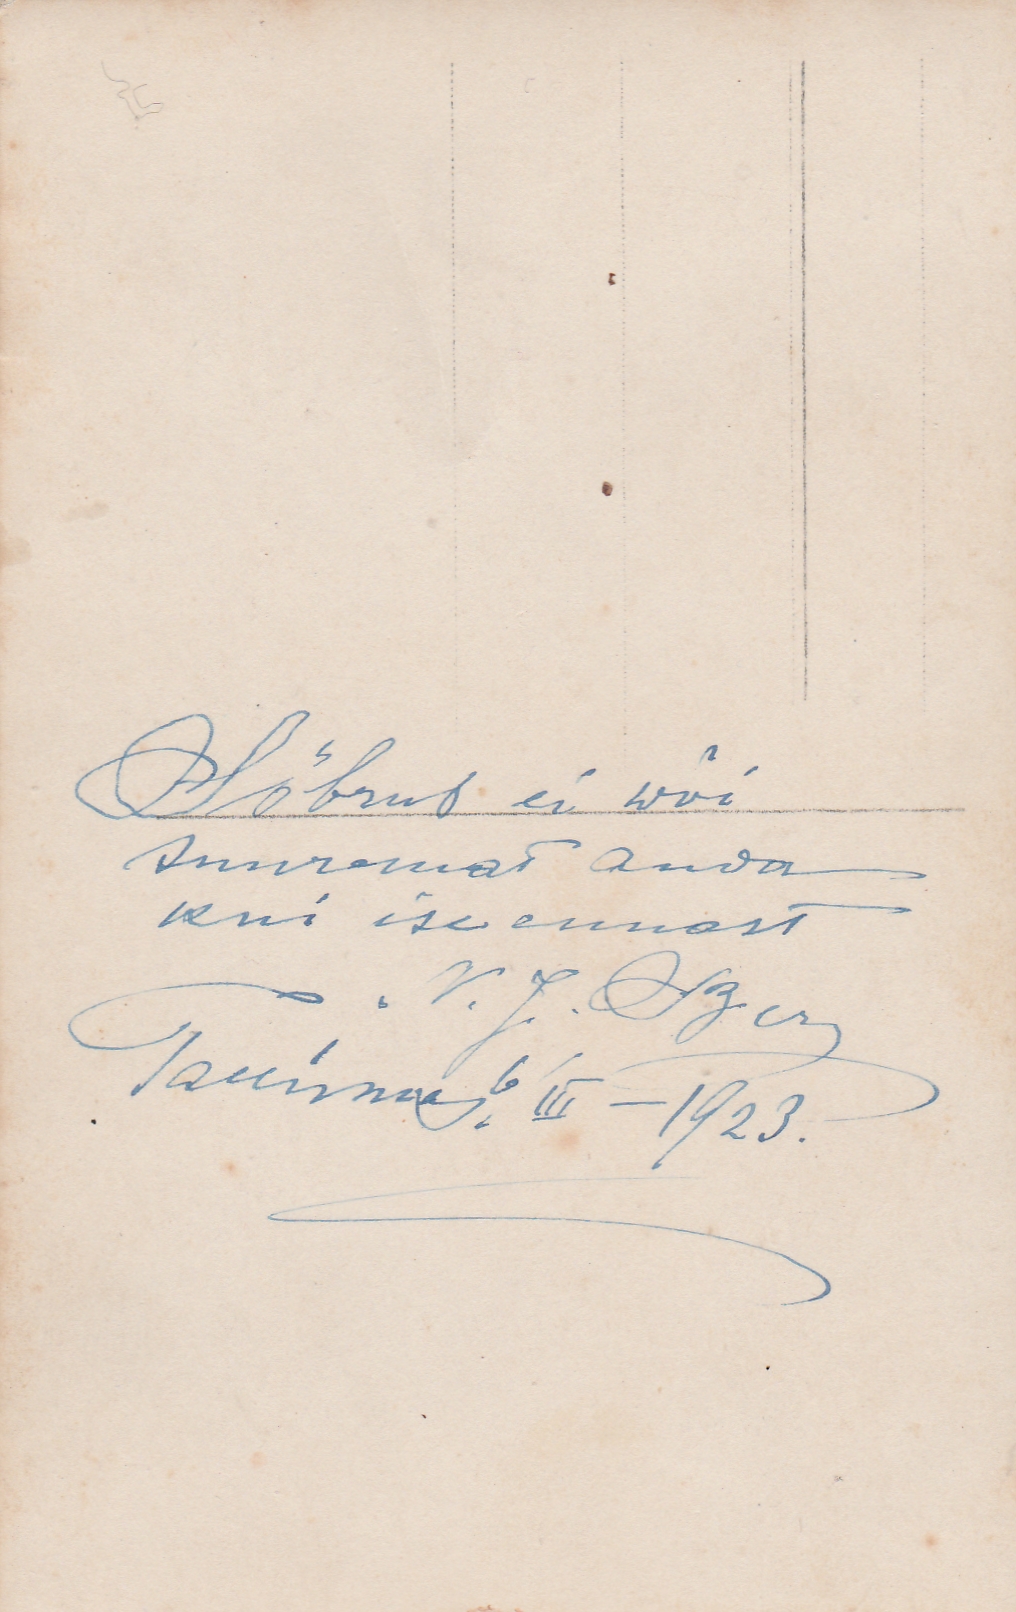 Sõbrus ei wõi
suuremat anda
kui iseennast
N. J.
Tallinnas, 6/III – 1923.